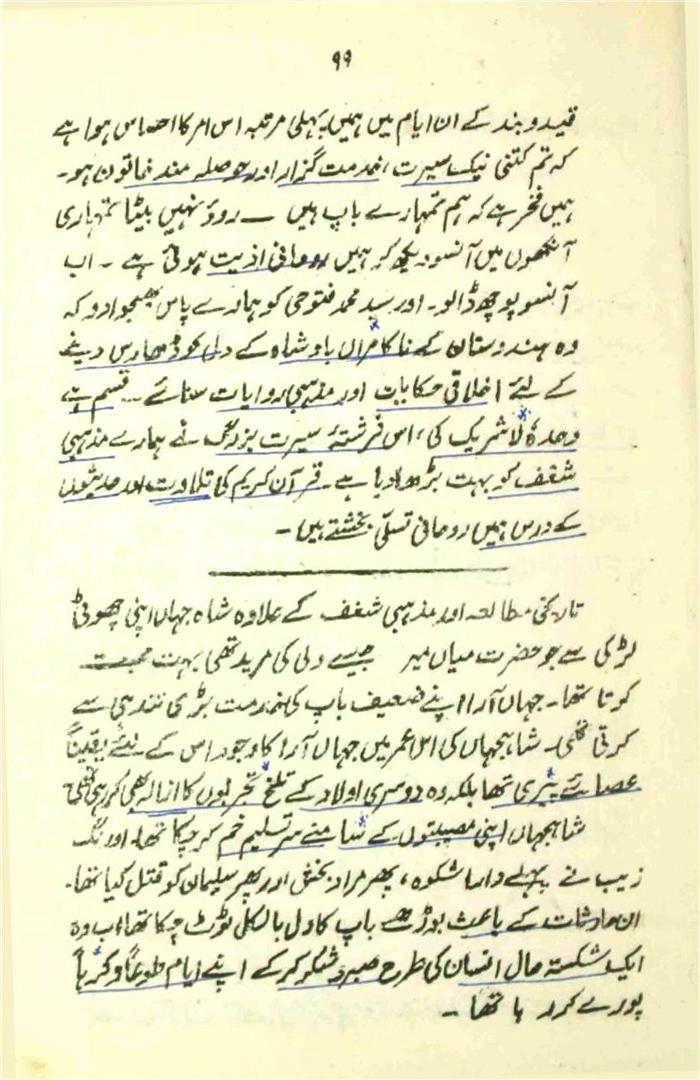 ۹۹
قید و بند کے ان ایام میں ہمیں پہلی مرتبہ اس امر کا احساس ہوا ہے
کہ تم کتنی نیک سیرت ، خدمت گزار اور حوصلہ مند خاتون ہو۔
ہمیں فخر ہے کہ ہم تمہارے باپ ہیں ــ روؤ نہیں بیٹا تمہاری
آنکھوں میں آنسو دیکھ کر ہمیں روحانی اذیت ہوتی ہے ۔ اب
آنسو پوچھ ڈالو۔ اور سید محمد قنوجی کو ہمارے پاس بھیجوا دو کہ
وہ ہندوستان کے ناکامراں بادشاہ کے دل کو ڈھارس دینے
کے لئے اخلاقی حکایات اور مذہبی روایات سنائے ۔ قسم ہے
وحدہٗ لا شریک کی ، اس فرشتۂ سیرت بزرگ نے ہمارے مذہبی
شغف کو بہت بڑھا دیا ہے۔ قرآن کریم کی تلاوت اور حدیثوں
کے درس ہمیں روحانی تسلی بخشتے ہیں ۔
تاریخی مطالعہ اور مذہبی شغف کے علاوہ شاہ جہاں اپنی چھوٹی
لڑکی سے جو حضرت میاں میر جیسے ولی کی مرید تھی بہت محبت
کرتا تھا۔ جہاں آرا اپنے ضعیف باپ کی خدمت بڑی تندہی سے
کرتی تھی۔ شاہجہاں کی اس عمر میں جہاں آرا کا وجود اس کے لئے یقیناً
عصائے پیری تھا بلکہ وہ دوسری اولاد کے تلخ تجربوں کا ازالہ بھی کر رہی تھی
شاہجہاں اپنی مصیبتوں کے سامنے سر تسلیم خم کر چکا تھا۔ اورنگ
زیب نے پہلے دارا شکوہ ، پھر مراد بخش اور پھر سلیمان کو قتل کیا تھا۔
ان حادثات کے باعث بوڑھے باپ کا دل بالکل ٹوٹ چکا تھا، اب وہ
ایک شکستہ حال انسان کی طرح صبر و شکر کر کے اپنے ایام طوعاً و کرہاً
پورے کر رہا تھا ۔